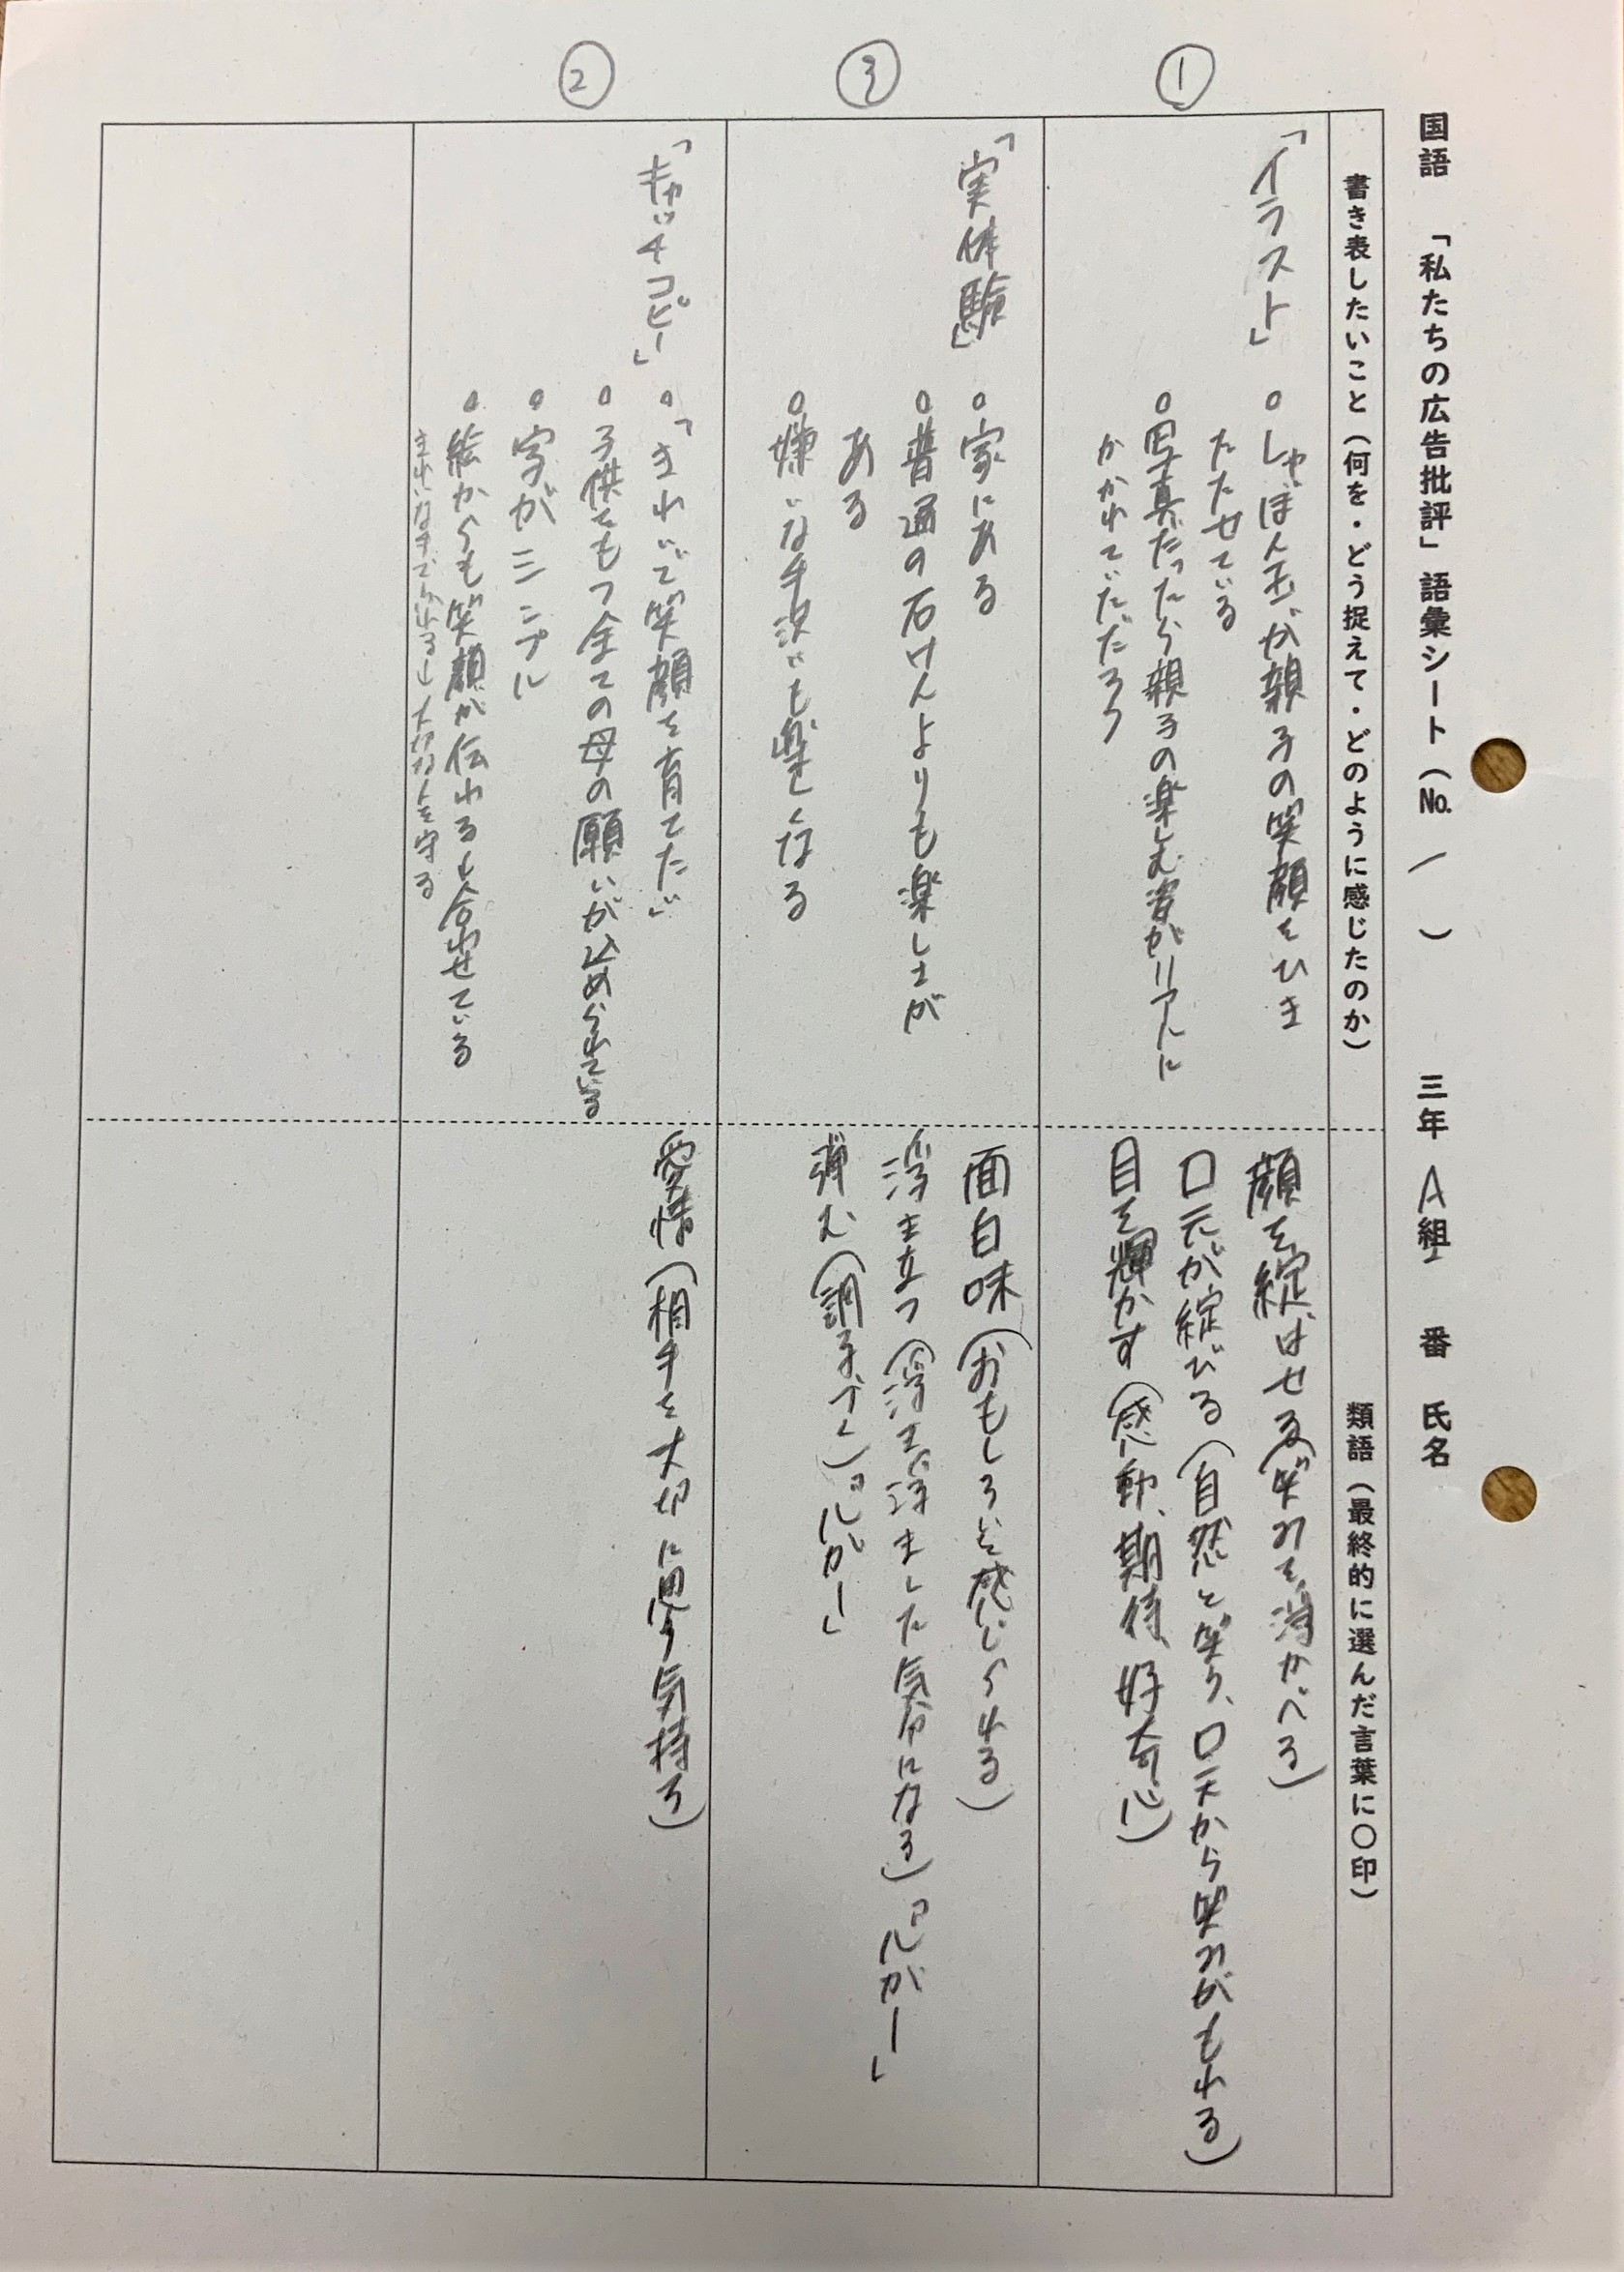 国語 「私たちの広告批評」語彙シート（No. 1 ） 三年 A組 番 氏名
書き表したいこと（何を・どう捉えて・どのように感じたのか）
類語（最終的に選んだ言葉に〇印）
①
「イラスト」
・しゃぼん玉が親子の笑顔をひき
たたせている
・写真だったら親子の楽しむ姿がリアルに
かかれていただろう
顔を綻ばせる（笑みを浮かべる）
口元が綻びる（自然と笑う、口元から笑みがもれる）
目を輝かす（感動、期待、好奇心）
③
「実体験」
・家にある
・普通の石けんよりも楽しさが
ある
・嫌いな手洗いも楽しくなる
面白味（おもしろいと感じられる）
浮き立つ（浮き浮きした気分になる）「心が―」
弾む（調子づく）「心が―」
②
「キャッチコピー」
・「きれいで笑顔を育てたい」
・子供をもつ全ての母の願いが込められている
・字がシンプル
・絵からも笑顔が伝わるし合わせている
大切な人を守る
愛情（相手を大切に思う気持ち）